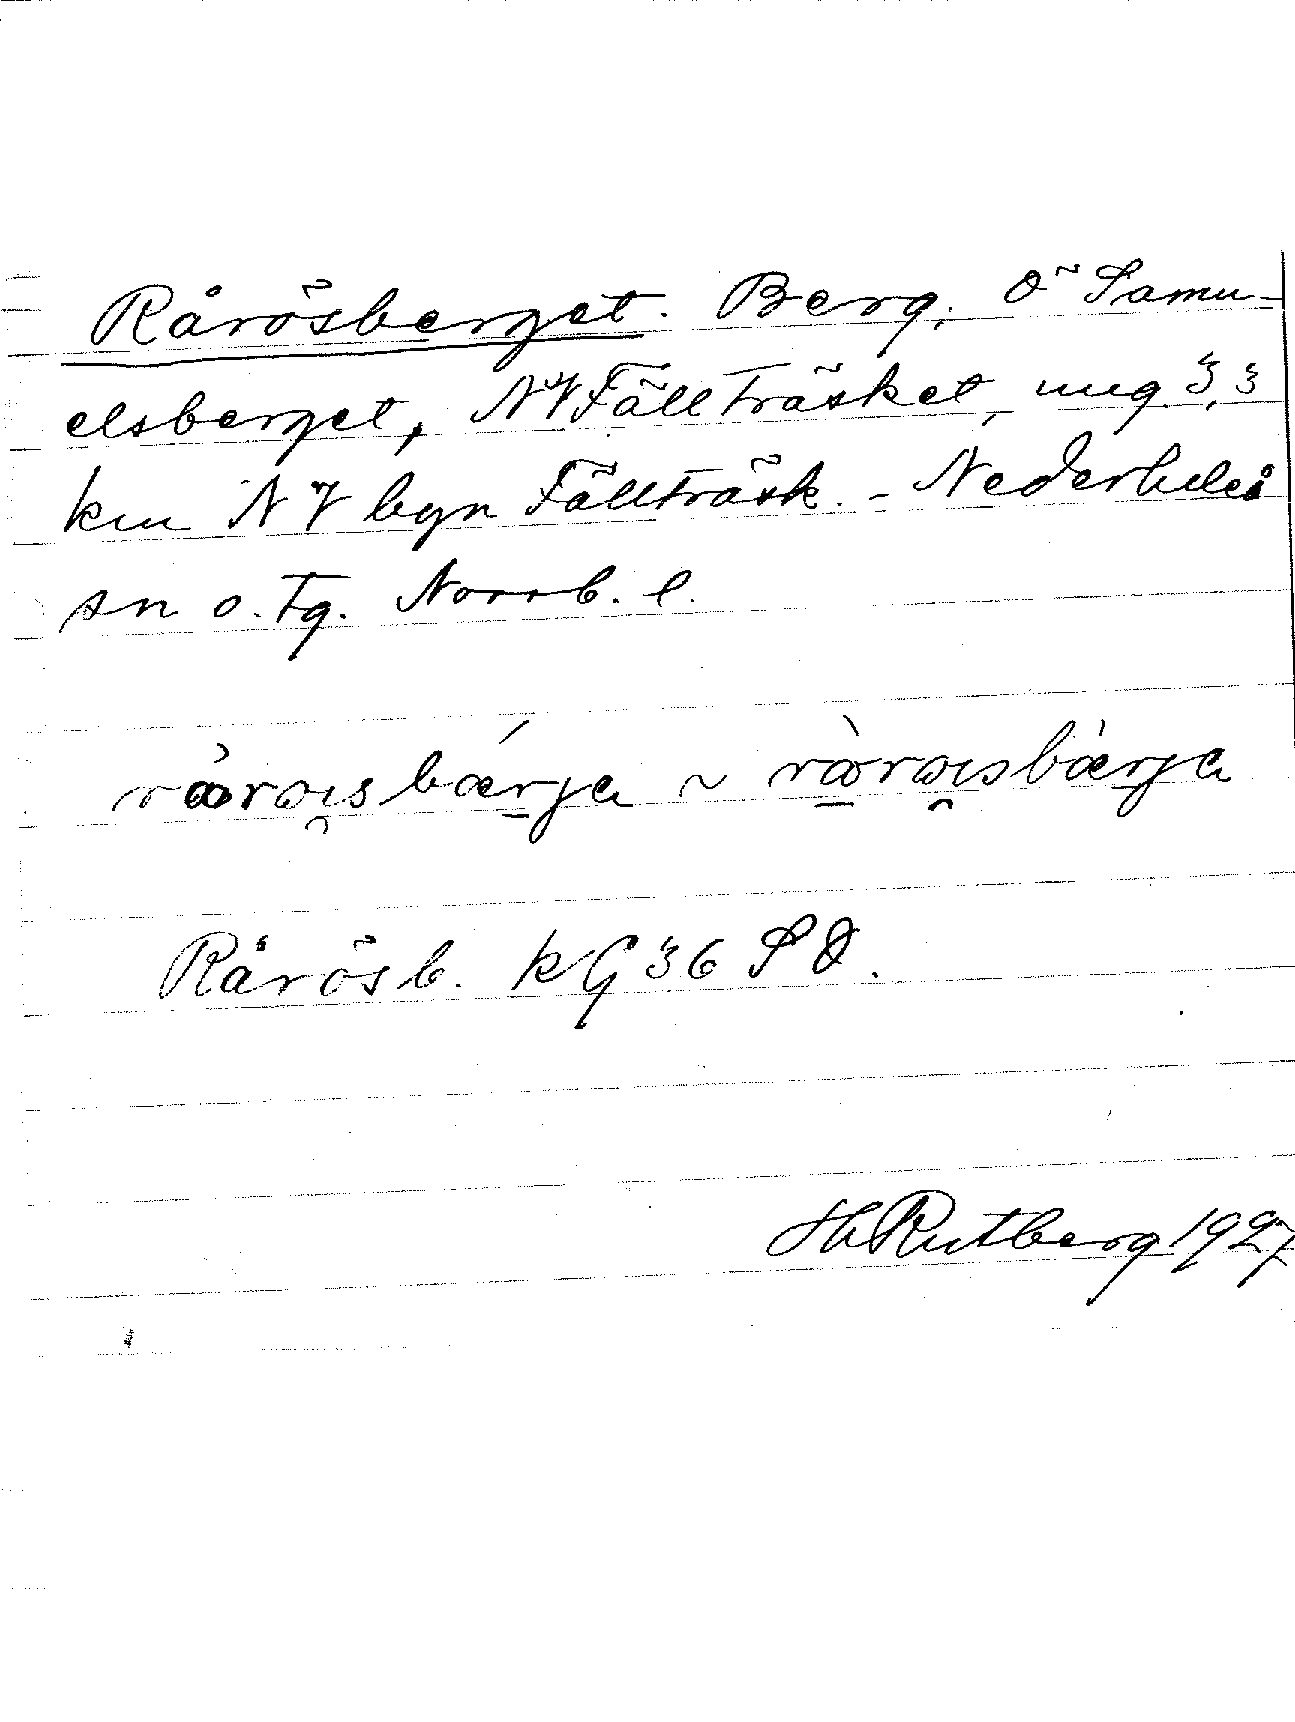 Rårösberget. Berg, Ö Samu-
elsberget, NV Fällträsket, ung 3,3
km NV byn Fällträsk. - Nederluleå
sn o. tg. Norrb. l.
rårɷısbærja ~ rårɷısbærja
Rårösb. kG 36 SO.
HRutberg 1927